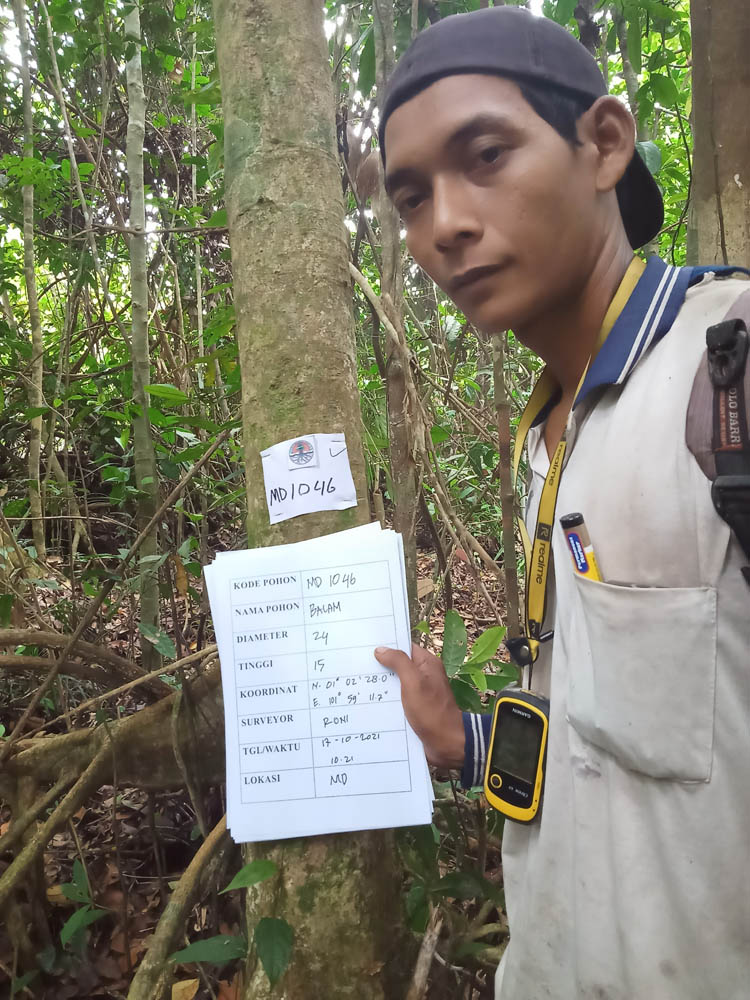 MD 1046
KODE POHON MD 1046
NAMA POHON BALAM
DIAMETER 24
TINGGI 15
KOORDINAT N. 01° 02' 28.0"
E. 101° 59' 11.7"
SURVEYOR RONI
TGL/WAKTU 17-10-2021
10.21
LOKASI MD
realme
realme
GARMIN
POLO BARR